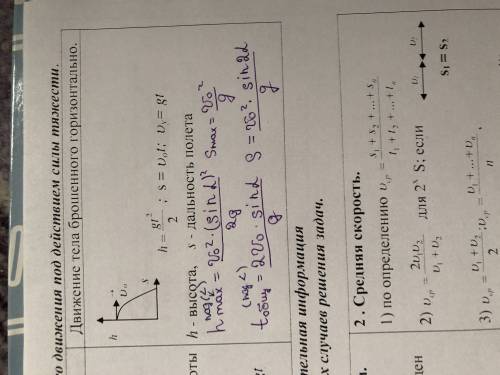 го движения под действием силы тяжести.
Движение тела брошенного горизонтально.
h
υ₀
s
h = gt²/2 ; s = υ₀t; υᵧ = gt
h - высота, s - дальность полета
над(∠)
h max = υ₀²·(sin α)²/2g Smax = υ₀²/g
(над ∠)
tобщ = 2υ₀·sin α/g S = υ₀²·sin2α/g
тельная информация
х случаев решения задач.
2 . Средняя скорость.
1) по определению υср = s₁ + s₂ + ... + sₙ / t₁ + t₂ + ... + tₙ
2) υср = 2υ₁υ₂ / υ₁ + υ₂ для 2ˣ S; если υ₁ υ₂
s₁ = s₂
3) υср = υ₁ + υ₂ / 2 ; υср = υ₁ + ... + υₙ / n